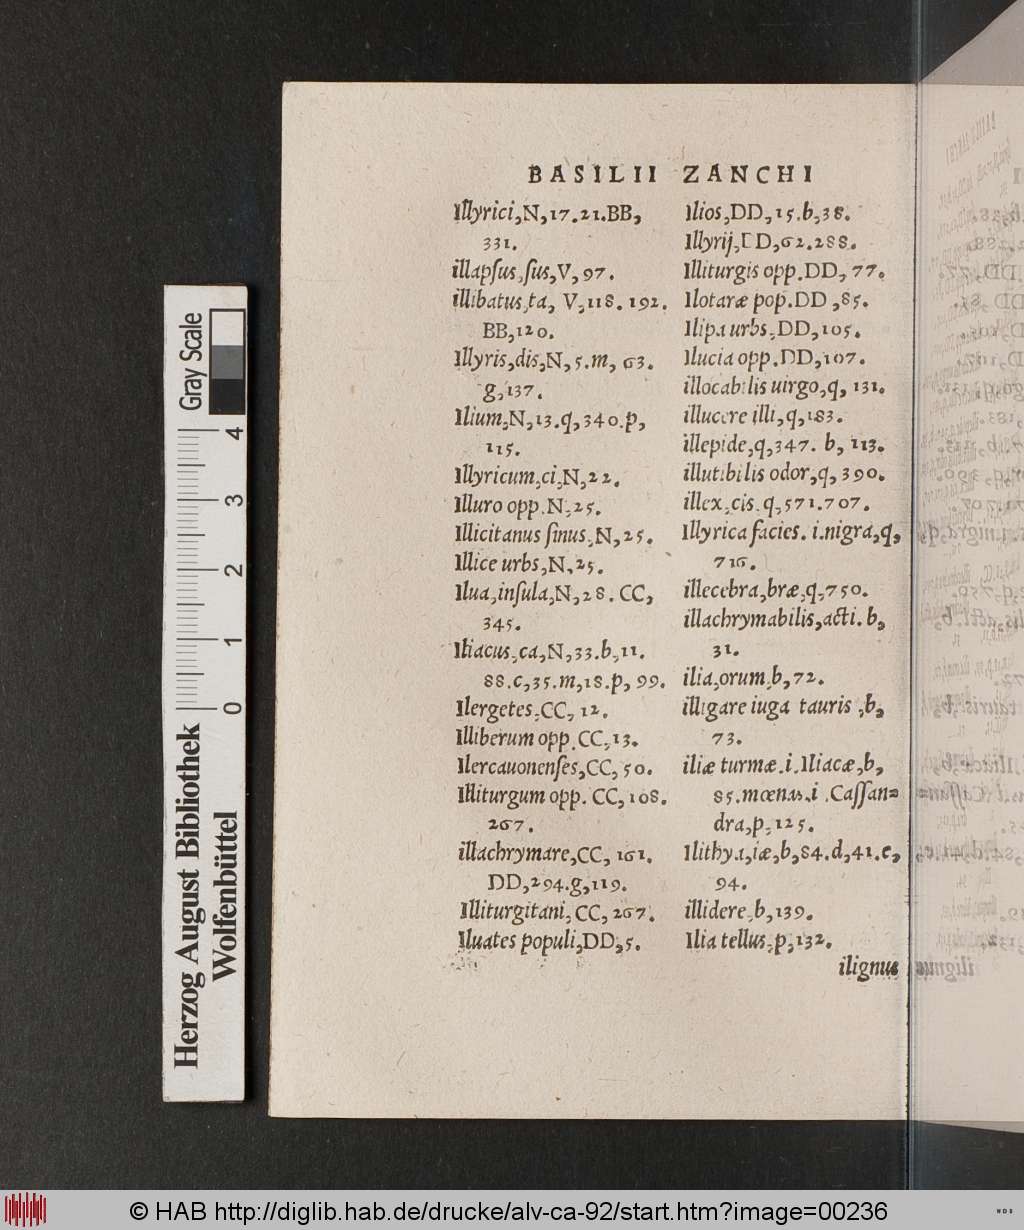 BASILII ZANCHI
Illyrici,N,17.21.BB,
331.
illapſus,ſus,V,97.
illibatus,ta, V,118.192.
BB,120.
Illyris,dis,N,5.m,63.
g,137.
Ilium,N,13.q,340.p,
115.
Illyricum,ci,N,22.
Illuro opp.N,25.
Illicitanus ſinus,N,25.
Illice urbs,N,25.
Ilua,inſula,N,28.CC,
345.
Iliacus,ca,N,33.b,11.
88.c,35.m,18.p,99.
Ilergetes,CC,12.
Illiberum opp.CC,13.
Ilercauonenſes,CC,50.
Illiturgum opp. CC,108.
267.
illachrymare,CC,161.
DD,294.g,119.
Illiturgitani,CC,267.
Iluates populi,DD,5.
Ilios,DD,15.b,38.
Illyrij,DD,62.288.
Illiturgis opp.DD,77.
Ilotaræ pop.DD,85.
Ilipa urbs,DD,105.
Ilucia opp.DD,107.
illocabilis uirgo,q,131.
illucere illi,q,183.
illepide,q,347. b,113.
illutibilis odor,q,390.
illex,cis,q,571.707.
Illyrica facies.i.nigra,q,
716.
illecebra,bræ,q,750.
illachrymabilis,acti.b,
31.
ilia,orum,b,72.
illigare iuga tauris,b,
73.
iliæ turmæ.i.Iliacæ,b,
85.mœnas.i.Caſſan=
dra,p,125.
Ilithya,iæ,b,84.d,41.e,
94.
illidere,b,139.
Ilia tellus,p,132.
ilignus
Gray Scale
4
3
2
1
0
Herzog August Bibliothek
Wolfenbüttel
© HAB http://diglib.hab.de/drucke/alv-ca-92/start.htm?image=00236
WDB